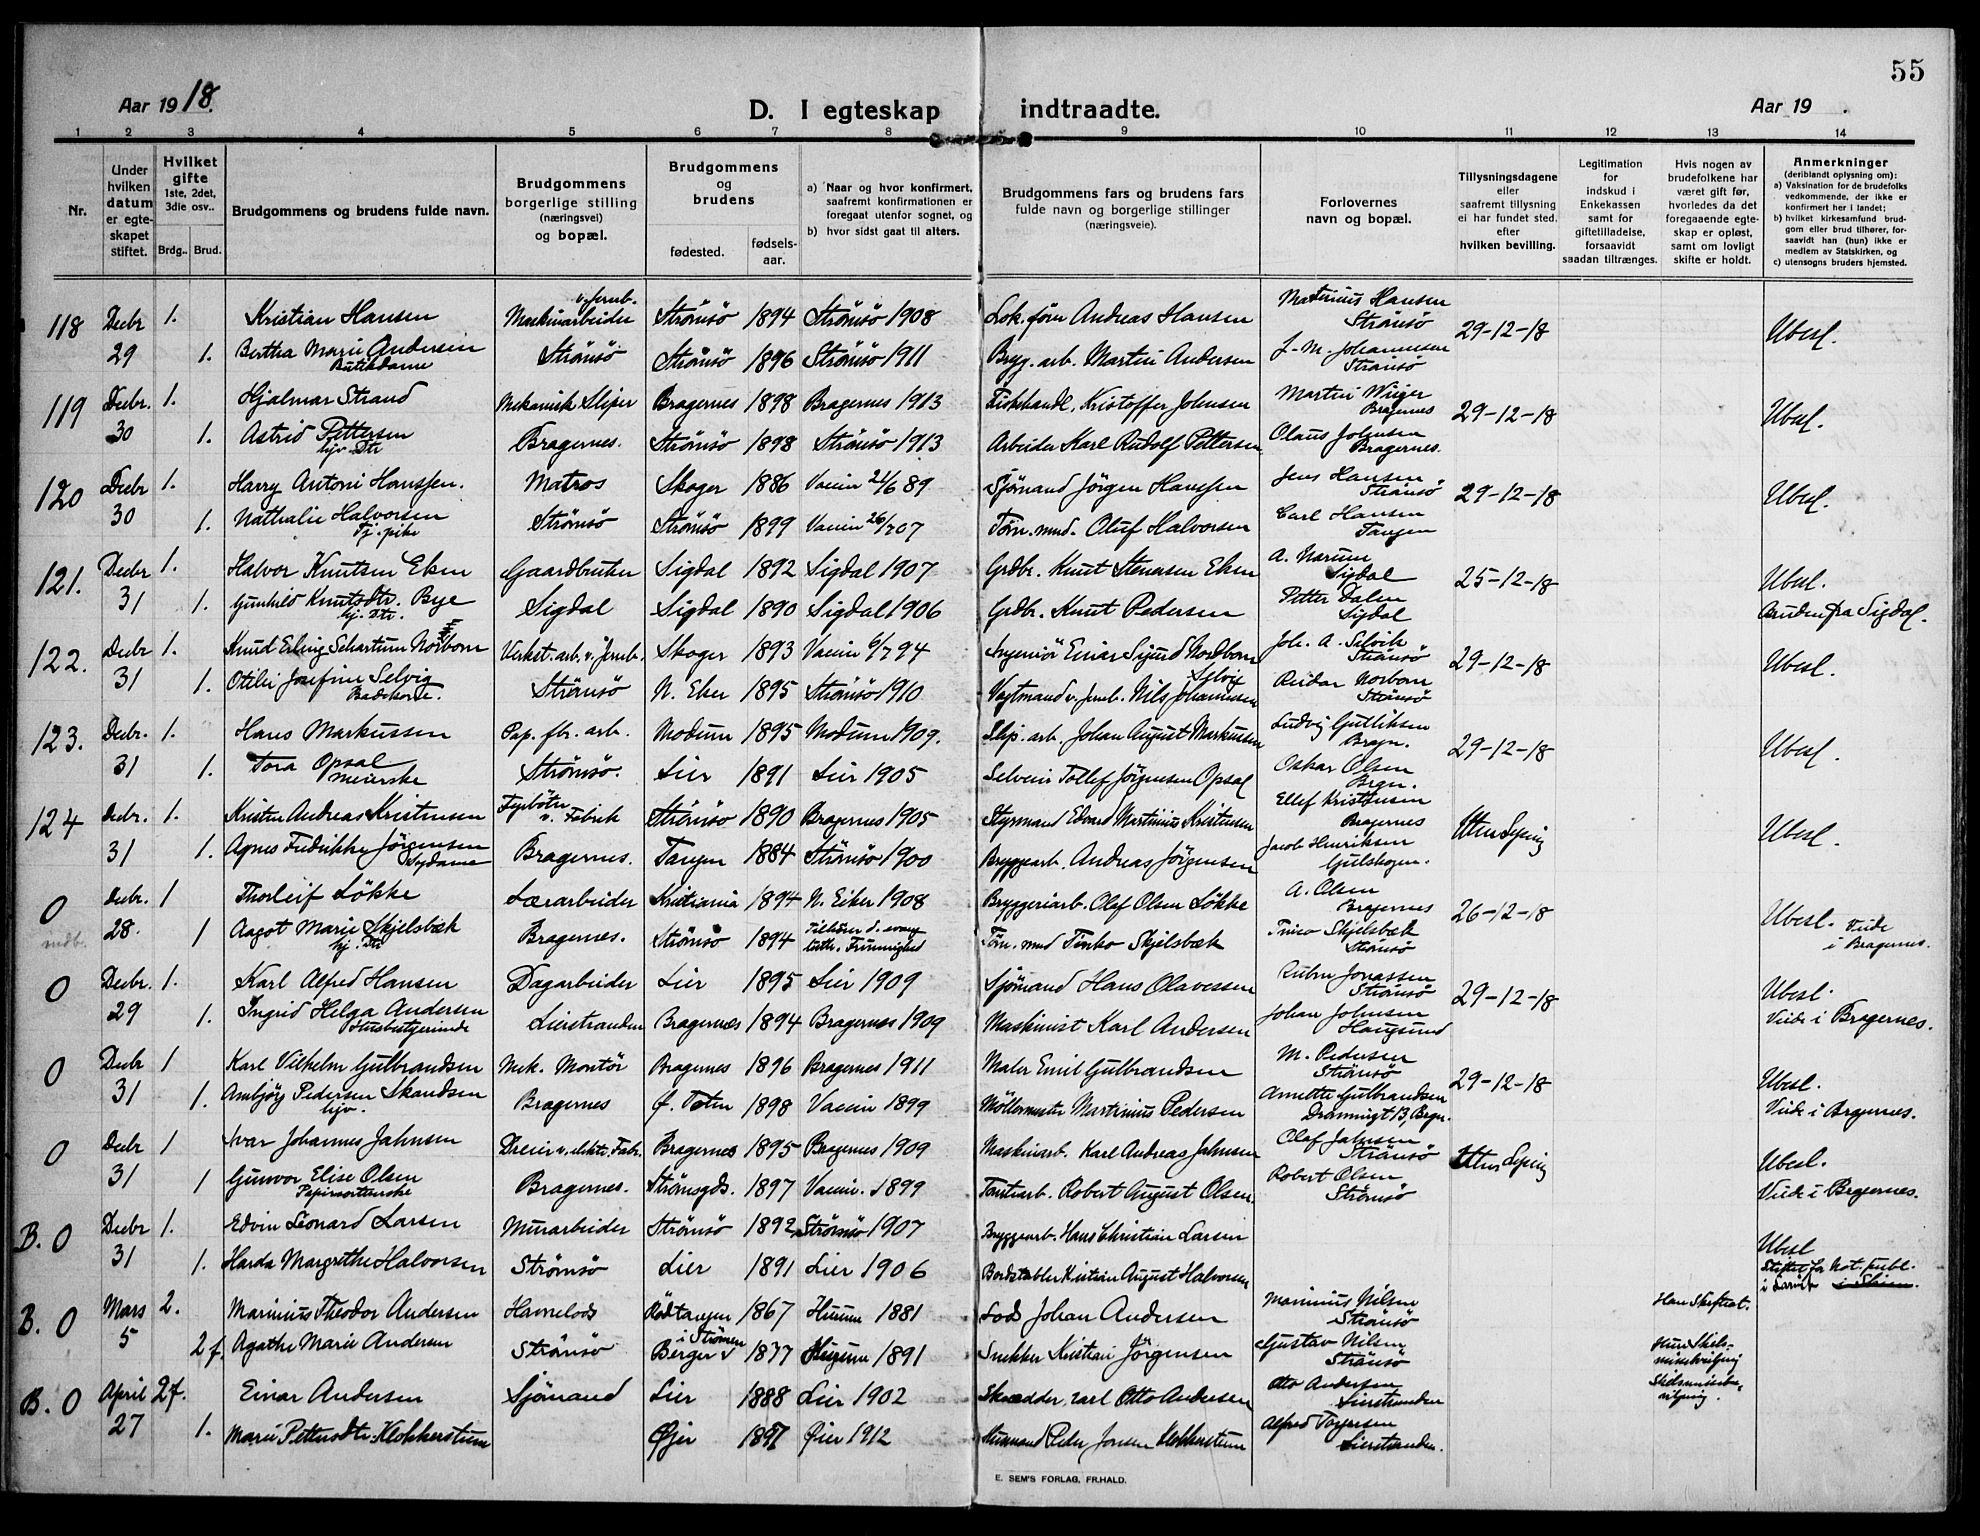 55
Aar 1918. D. I egteskap indtraadte. Aar 19 .
1 2 3 4 5 6 7 8 9 10 11 12 13 14
Nr.
Under hvilken datum er egteskapet stiftet.
Hvilket gifte 1ste, 2det, 3die osv..
Brdg.. Brud.
Brudgommens og brudens fulde navn.
Brudgommens borgerlige stilling (næringsvei) og bopæl.
Brudgommens og brudens
fødested. fødselsaar.
a) Naar og hvor konfirmert, saafremt konfirmationen er foregaat utenfor sognet, og
b) hvor sidst gaat til alters.
Brudgommens fars og brudens fars fulde navn og borgerlige stillinger (næringsveie).
Forlovernes navn og bopæl.
Tillysningsdagene eller saafremt tillysning ei har fundet sted, efter hvilken bevilling.
Legitimation for indskud i Enkekassen samt for giftetilladelse, forsaavidt saadan tiltrænges.
Hvis nogen av brudefolkene har været gift før, hvorledes da det foregaaende egteskap er opløst, samt om lovligt skifte er holdt.
Anmerkninger (deriblandt oplysning om):
a) Vaksination for de brudefolks vedkommende, der ikke er konfirmert her i landet;
b) hvilket kirkesamfund brudgom eller brud tilhører, forsaavidt han (hun) ikke er medlem av Statskirken, og
c) utensogns bruders hjemsted.
118 Decbr 1. Kristian Hansen Maskinarbeider v. Jernb. Strömsö 1894 Strömsö 1908 Lok. förer Andreas Hansen Martinius Hansen Strömsö 29-12-18 Ubesl.
29 1. Bertha Marie Andersen Butikdame Strömsö Strömsö 1896 Strömsö 1911 Bryg. arb. Martin Andersen J. M. Johannesen Strömsö
119 Decbr. 1. Hjalmar Strand Mekanisk Sliper Bragernes 1898 Bragernes 1913 Fiskehandl. Kristoffer Johnsen Martin Wiiger Bragernes 29-12-18 Ubesl.
30 1. Astrid Pettersen hjv. Dtr Bragernes. Strömsö 1898 Strömsö 1913 Arbeider Karl Rudolf Pettersen Olaus Johnsen Bragernes.
120 Decbr 1. Harry Antoni Hanssen. Matros Skoger 1886 Vaccin 21/6 89 Sjömand Jörgen Hanssen Jens Hansen Strömsö 29-12-18 Ubesl.
30 1. Nathalie Halvorsen Tj. pike Strömsö Strömsö 1899 Vaccin 26/7 07 Törn. mnd. Oluf Halvorsen Carl Hansen Tangen
121. Decbr 1. Halvor Knutsen Eken Gaardbruker Sigdal 1892 Sigdal 1907 Grdbr. Knut Stenersen Eken A. Narum Sigdal 25-12-18 Ubesl.
31 1. Gunhild Knutsdtr. Bye hj. Dtr. Sigdal Sigdal 1890 Sigdal 1906 Grdbr. Knut Pedersen Petter Dalen Sigdal Bruden fra Sigdal.
122. Decbr 1. Knud Erling Schartum Norbom Verkst. arb. v. Jernb. Skoger 1893 Vaccin 6/7 94 Ingeniör Einar Sigurd Nordbom Joh. A. Selvik Strömsö 29-12-18 Ubesl.
31 1. Otilie Josefine Selvig Strömsö N. Eker 1895 Strömsö 1910 Vagtmand v. Jernb. Nils Johannesen Selvig Reidar Norbom Strömsö
123. Decbr. 1. Hans Markussen Pap. fbr. arb. Modum 1895 Modum 1909. Slip. arb. Johan August Markussen Ludvig Gulliksen Bragn. 29-12-18 Ubesl.
31 1. Tora Opsal Meierske Strömsö. Lier 1891 Lier 1905 Selveier Tollef Jörgensen Opsal Oskar Olsen Bragn.
124 Decbr. 1. Kristen Andreas Kristensen Fyrböter v. Fabrik Strömsö 1890 Bragernes 1905 Styrmand Edvard Martinius Kristensen Ellef Kristensen Bragernes Uten lysning Ubesl.
31 1. Agnes Fredrikke Jörgensen Sydame Bragernes. Tangen 1884 Strömsö 1900 Bryggearb. Andreas Jörgensen Jacob Henriksen Gulskogen.
0 Decbr. 1 Thorleif Lökke Lærarbeider Kristiania 1894 N. Eiker 1908 Bryggeriarb. Olaf Olsen Lökke A. Olsen Bragernes 26-12-18 Ubesl. Viede i Bragernes.
28. 1 Aagot Marie Skjelsbæk hj. Dtr Bragernes. Strömsö 1894 Tilhörer d. evang luth. Frimenighed Törn. mnd Skjelsbæk Skjelsbæk Strömsö
0 Decbr. 1. Karl Alfred Hansen Dagarbeider Lier 1895 Lier 1909 Sjömand Hans Olavessen Ruben Jonassen Strömsö 29-12-18 Ubesl.
29 1. Ingrid Helga Andersen Husbestyrerinde Lierstranden Bragernes 1894 Bragernes 1909 Maskinist Karl Andersen Johan Johnsen Haugsund Viede i Bragernes.
0 Decbr 1 Karl Vilhelm Gulbrandsen Mek. Montör Bragernes 1896 Bragernes 1911 Maler Emil Gulbrandsen M. Pedersen Strömsö 29-12-18 Ubesl.
31 1. Ambjörg Pedersen Skandsen hjv. Bragernes Ö. Toten 1898 Vaccin 1899 Möllemester Martinius Pedersen Annette Gulbrandsen Dronningt 13, Bragn. Viede i Bragernes.
0 Decbr 1 Ivar Johannes Jahnsen Dreier v. elektr. Fabr. Bragernes 1895 Bragernes 1909 Maskinarb. Karl Andreas Jahnsen Olaf Jahnsen Strömsö Uten lysning Ubesl.
31 1 Gunvor Elise Olsen Papirsorterske Bragernes. Strömsgds. 1897 Vaccin. 1899 Tomtearb. Robert August Olsen Robert Olsen Strömsö Viede i Bragernes.
B. 0 Decbr 1. Edvin Leonard Larsen Murarbeider Strömsö 1892 Strömsö 1907 Bryggearb. Hans Christian Larsen Ubesl
31 1. Harda Margrethe Halvorsen Strömsö Lier 1891 Lier 1906 Bordstabler Kristian August Halvorsen Stiftet for Not. publ. i Larvik i Skien.
B. 0 Mars 2. Marinius Theodor Andersen Havnelods Rödtangen 1867 Hurum 1881 Lods Johan Andersen Marinius Nilsen Strömsö Han Skifteat.
5 2 f. Agathe Marie Andersen Strömsö Berger i Strömm 1877 Hurum 1891 Snekker Kristian Jörgensen Gustav Nilsen Strömsö Hun Skilsmissebevilgning
B. 0 April 2 f. Einar Andersen Sjömand Lier 1888 Lier 1902 Skrædder Carl Otto Andersen Otto Andersen Lierstranden Skilsmissebevilgning.
27 1. Marie Pettersdtr. Klokkerstuen Öier 1897 Öier 1912 Husmand Peder Jonsen Klokkerstuen Alfred Torgersen Lierstranden.
E. SEM'S FORLAG, FR.HALD.